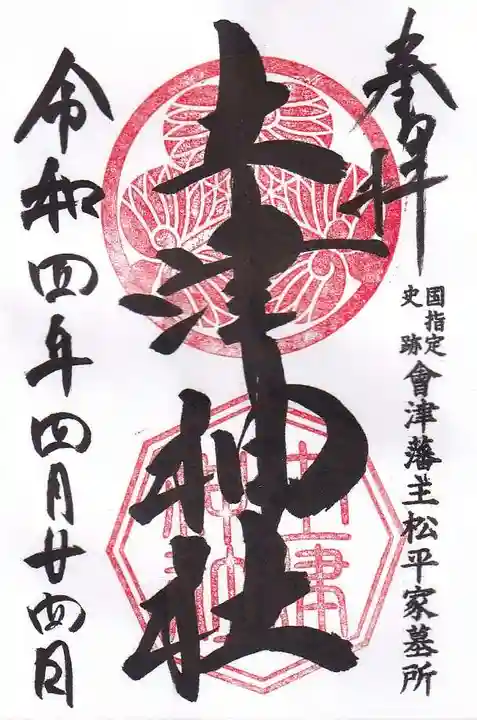 奉拝
国指定
史跡
會津藩主松平家墓所
土津神社
土津
神社
令和四年四月廿四日